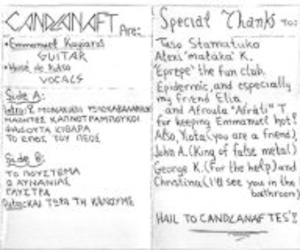 CANDLANAFT Are:
• Emmanuel Kugiaros
GUITAR
VOCALS
Side A:
ΦΑΣΟΥΤΑ ΚΙΘΑΡΑ
ΤΟ ΕΠΟΣ ΤΟΥ ΠΕΟΣ
Side B:
ΤΟ ΠΟΥΣΤΕΜΑ
Ο ΑΥΝΑΝΙΑΣ
ΓΛΥΣΤΡΑ
Outro: ΚΑΙ ΤΩΡΑ ΤΗ ΚΑΝΟΥΜΕ
Special Thanks to:
Taso Stamatuko
Alexi "mataka" K.
"Eprepe" the fun club.
Epidermic, and especially
my friend Elia,
and Afroula "Afrati" T
for keeping Emmanuel hot?
Also, Yiota (you are a friend)
John A. (King of false metal)
George K. (For the help) and
Christina (I'll see you in the
bathroom)
HAIL TO CANDLANAFTES'S!